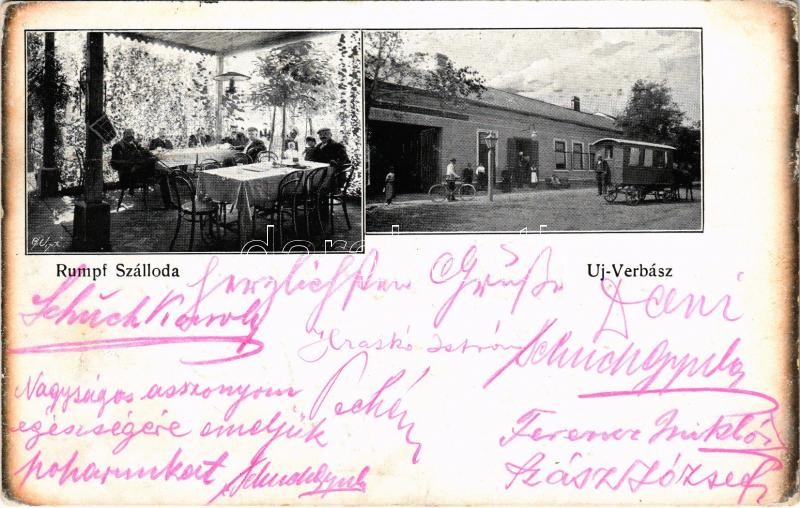 Rumpf Szálloda
Uj-Verbász
Herzlichsten Grüße
Dani
Schuch Károly
Hraskó István
Schuch Gyula
Nagyságos asszonyom
egészségére emeljük
poharunkat Schuch Gyula
Ferencz Miklós
Szász József